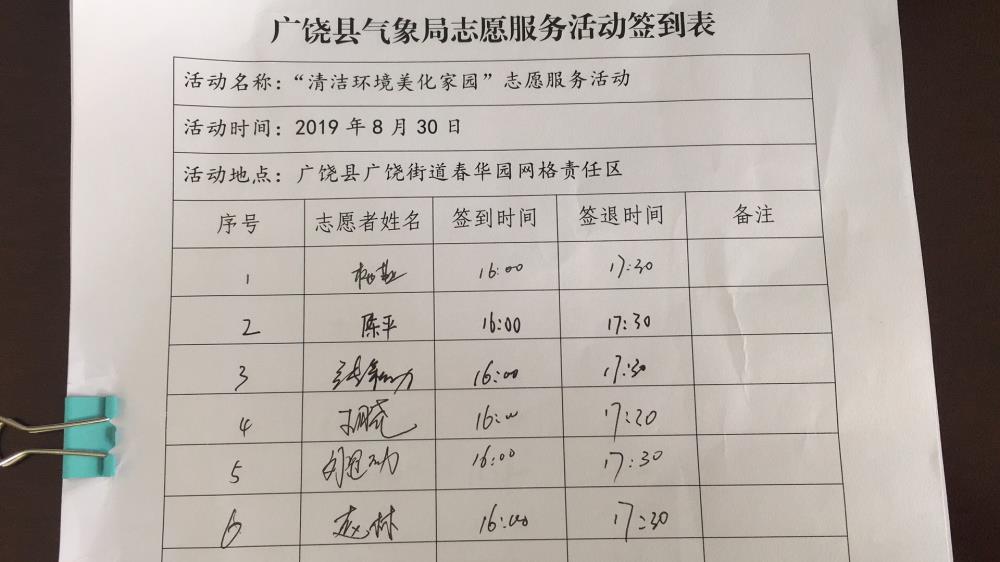 广饶县气象局志愿服务活动签到表
活动名称：“清洁环境美化家园”志愿服务活动
活动时间：2019 年 8 月 30 日
活动地点：广饶县广饶街道春华园网格责任区
序号 志愿者姓名 签到时间 签退时间 备注
1 16:00 17:30
2 陈平 16:00 17:30
3 16:00 17:30
4 16:00 17:20
5 16:00 17:30
6 赵林 16:00 17:30